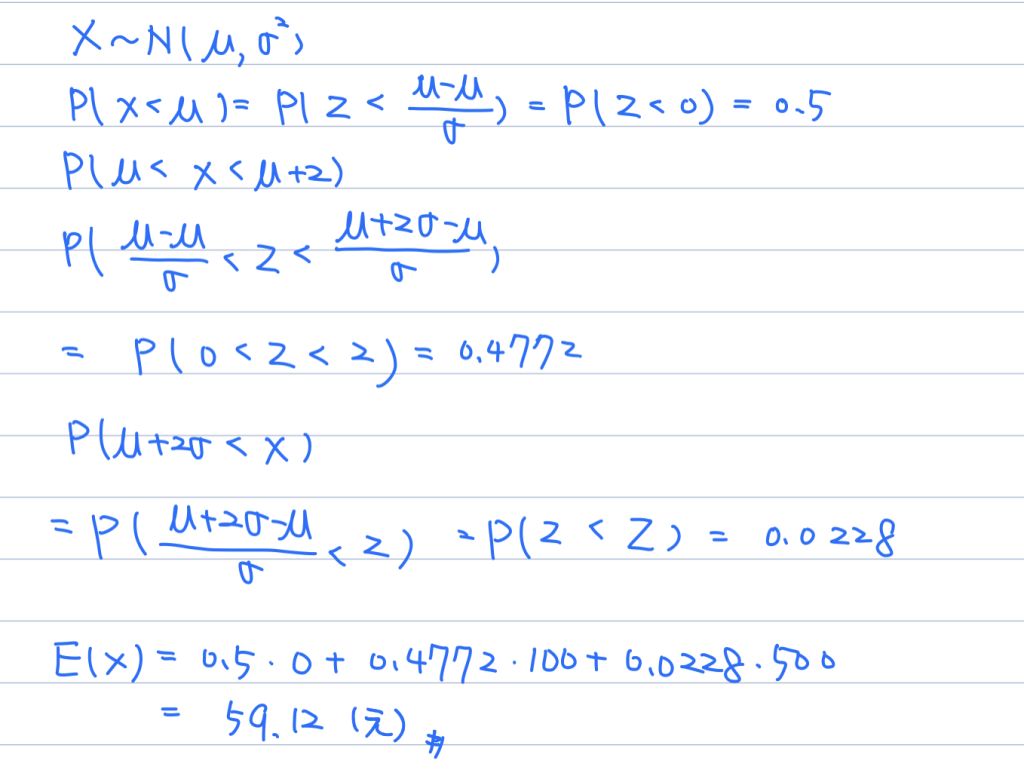 X~N(μ, σ²)
P(X<μ)= P(Z < (μ-μ)/σ) = P(Z<0) = 0.5
P(μ< X<μ+2)
P((μ-μ)/σ < Z < (μ+2σ-μ)/σ)
= P(0<Z<2) = 0.4772
P(μ+2σ < X)
= P((μ+2σ-μ)/σ < Z) = P(2 < Z) = 0.0228
E(X) = 0.5·0+ 0.4772·100+ 0.0228·500
= 59.12 (元)#